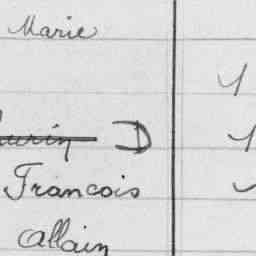 Marie
D
Francois
Allain